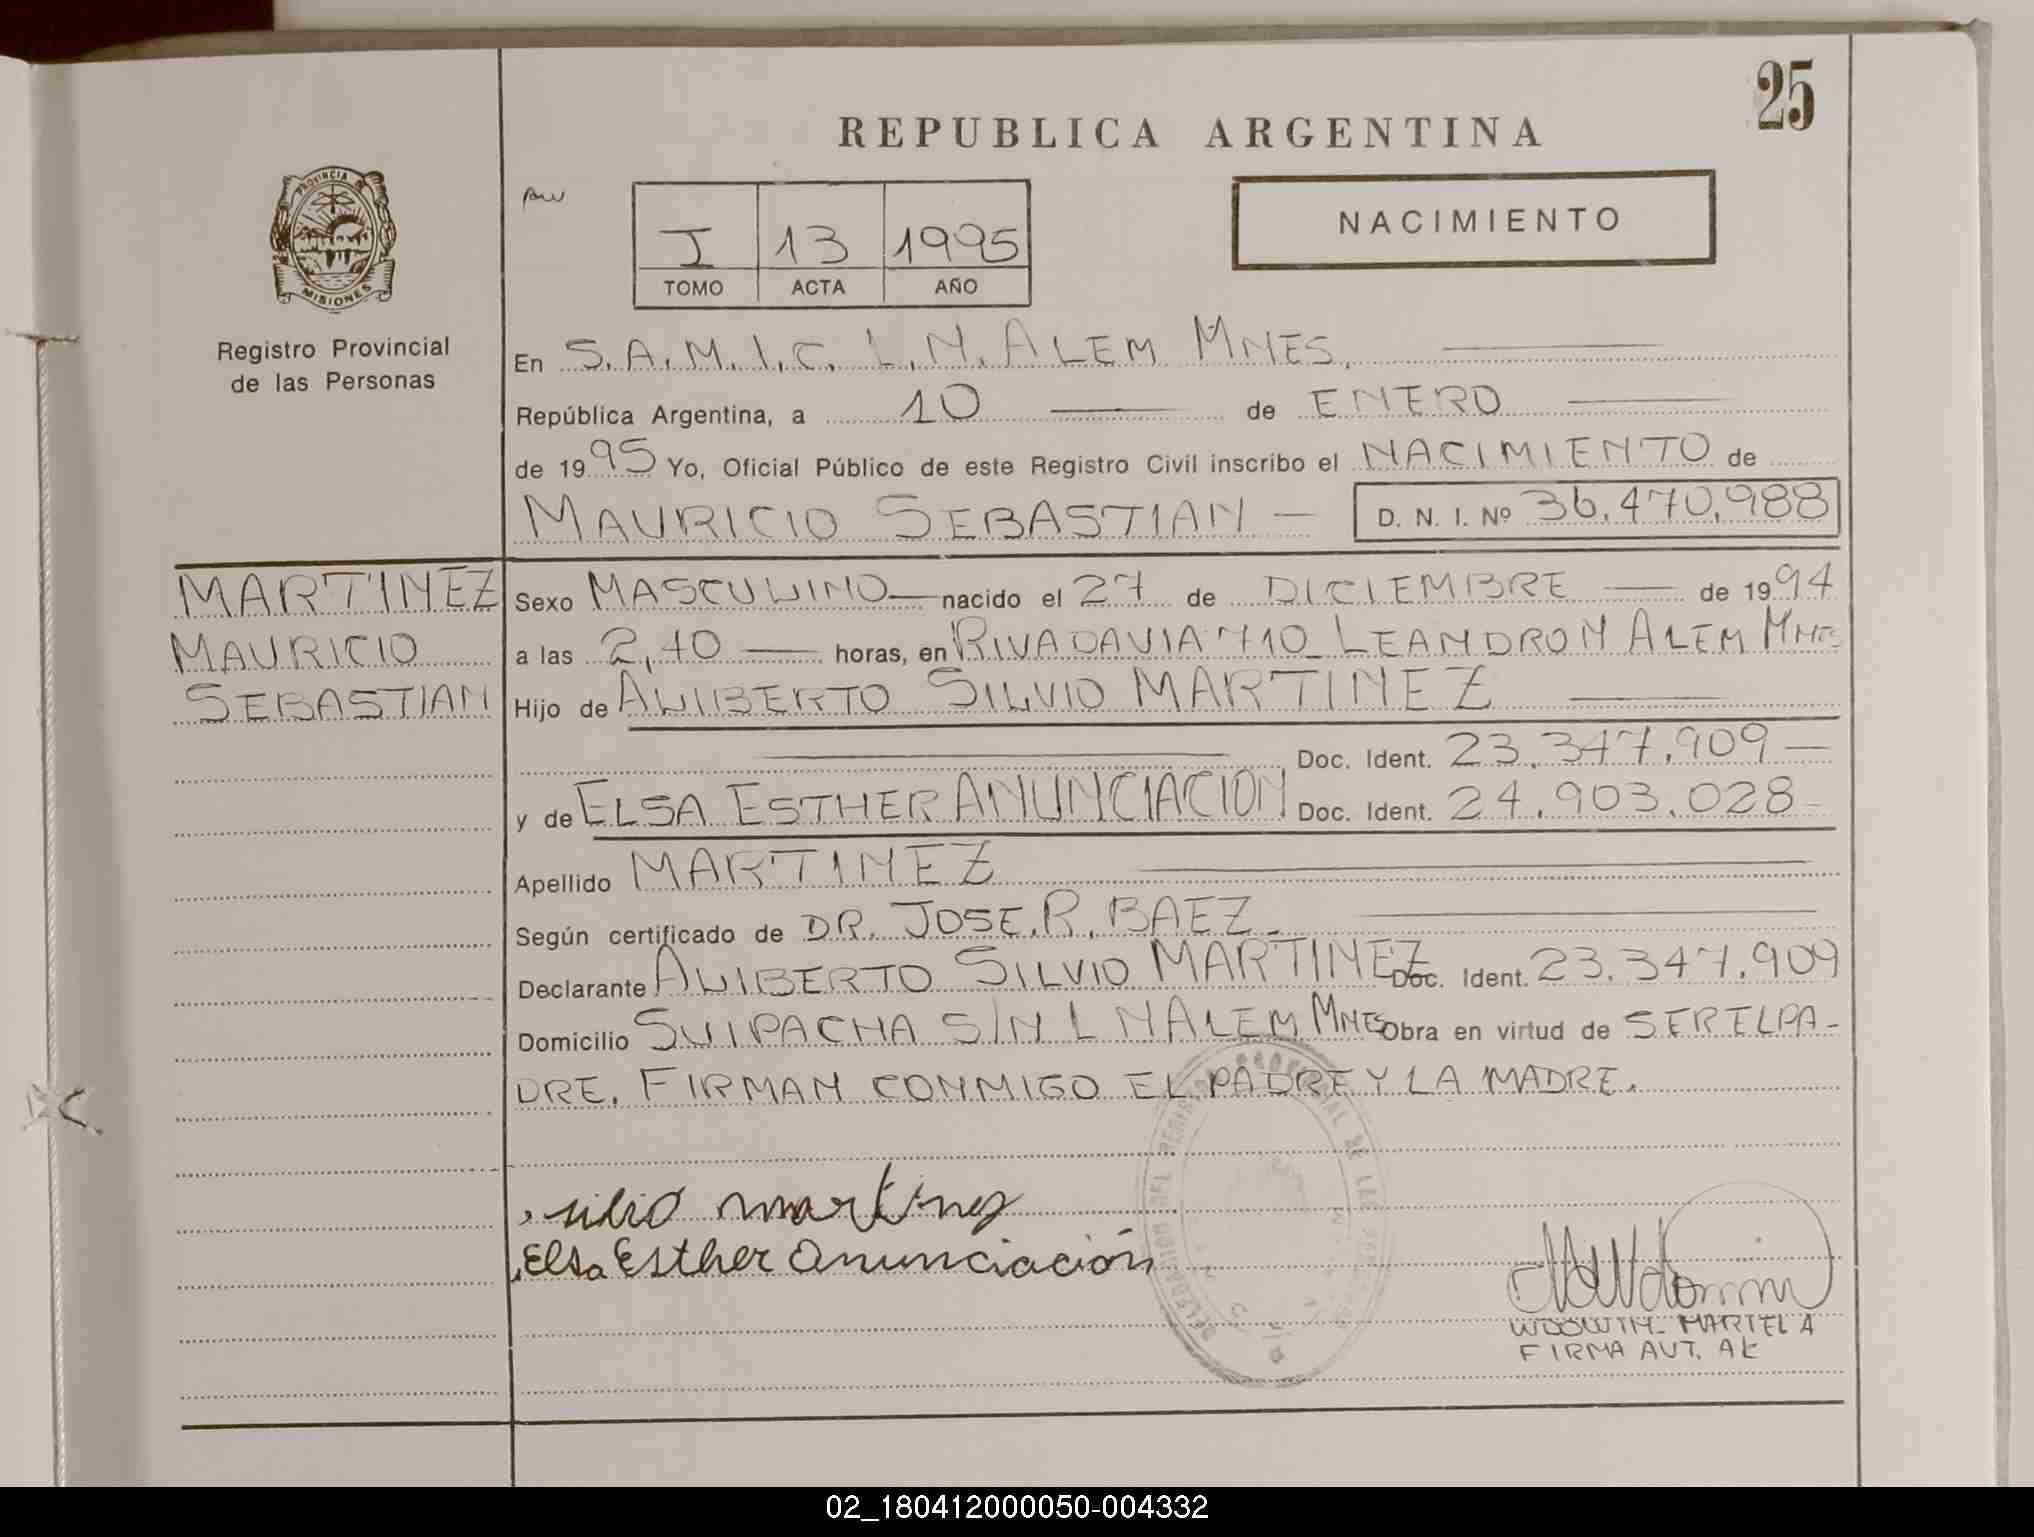 25
REPUBLICA ARGENTINA
PROVINCIA DE
MISIONES
Registro Provincial
de las Personas
I 13 1995
TOMO ACTA AÑO
NACIMIENTO
En S.A.M.I.C. L.N. ALEM MNES,
República Argentina, a 10 de ENERO
de 1995 Yo, Oficial Público de este Registro Civil inscribo el NACIMIENTO de
MAURICIO SEBASTIAN - D. N. I. Nº 36.470.988
MARTINEZ
MAURICIO
SEBASTIAN
Sexo MASCULINO nacido el 27 de DICIEMBRE de 1994
a las 2,40 horas, en RIVADAVIA 710 LEANDRO N ALEM MNES
Hijo de ALIBERTO SILVIO MARTINEZ
Doc. Ident. 23.347.909
y de ELSA ESTHER ANUNCIACION Doc. Ident. 24.903.028
Apellido MARTINEZ
Según certificado de DR. JOSE. R. BAEZ.
Declarante ALIBERTO SILVIO MARTINEZ Doc. Ident. 23.347.909
Domicilio SUIPACHA S/N L N ALEM MNES Obra en virtud de SER EL PA-
DRE. FIRMAN CONMIGO EL PADRE Y LA MADRE.
silvio martinez
Elsa Esther Anunciación
MARTELA
FIRMA AUT.
02_180412000050-004332